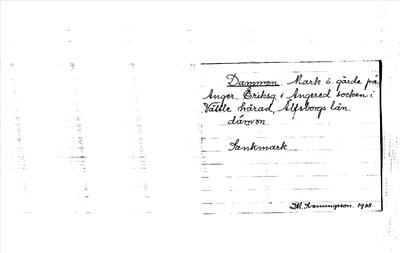 Dammen. Mark ö. gärde på
Anger. Eriksg. i Angered socken i
Vättle härad, Älfsborgs län.
dámən.
Sankmark
1908